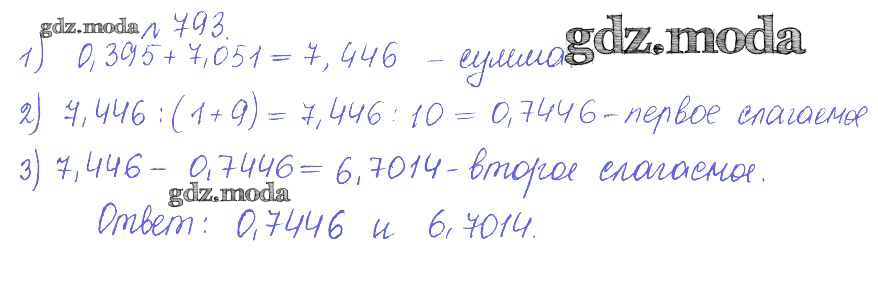 gdz.moda № 793.
1) 0,395 + 7,051 = 7,446 - сумма. gdz.moda
2) 7,446 : (1+9) = 7,446 : 10 = 0,7446 - первое слагаемое
3) 7,446 - 0,7446 = 6,7014 - второе слагаемое.
gdz.moda
Ответ: 0,7446 и 6,7014.